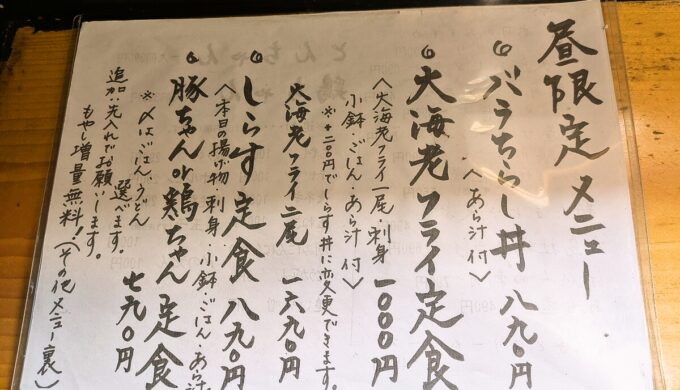 昼限定メニュー
◎バラちらし丼 八九〇円
〈あら汁付〉
◎大海老フライ定食
〈大海老フライ一尾・刺身 一〇〇〇円
小鉢・ごはん・あら汁付〉
※+二〇円でしらす丼に変更できます。
大海老フライ二尾 一六九〇円
◎しらす定食 八九〇円
〈本日の揚げ物・刺身・小鉢・ごはん・あら汁
◎豚ちゃんor鶏ちゃん定食
※〆はごはん、うどん 七九〇円
選べます。
追加、先入れでお願いします。
もやし増量無料!(その他メニュー裏)